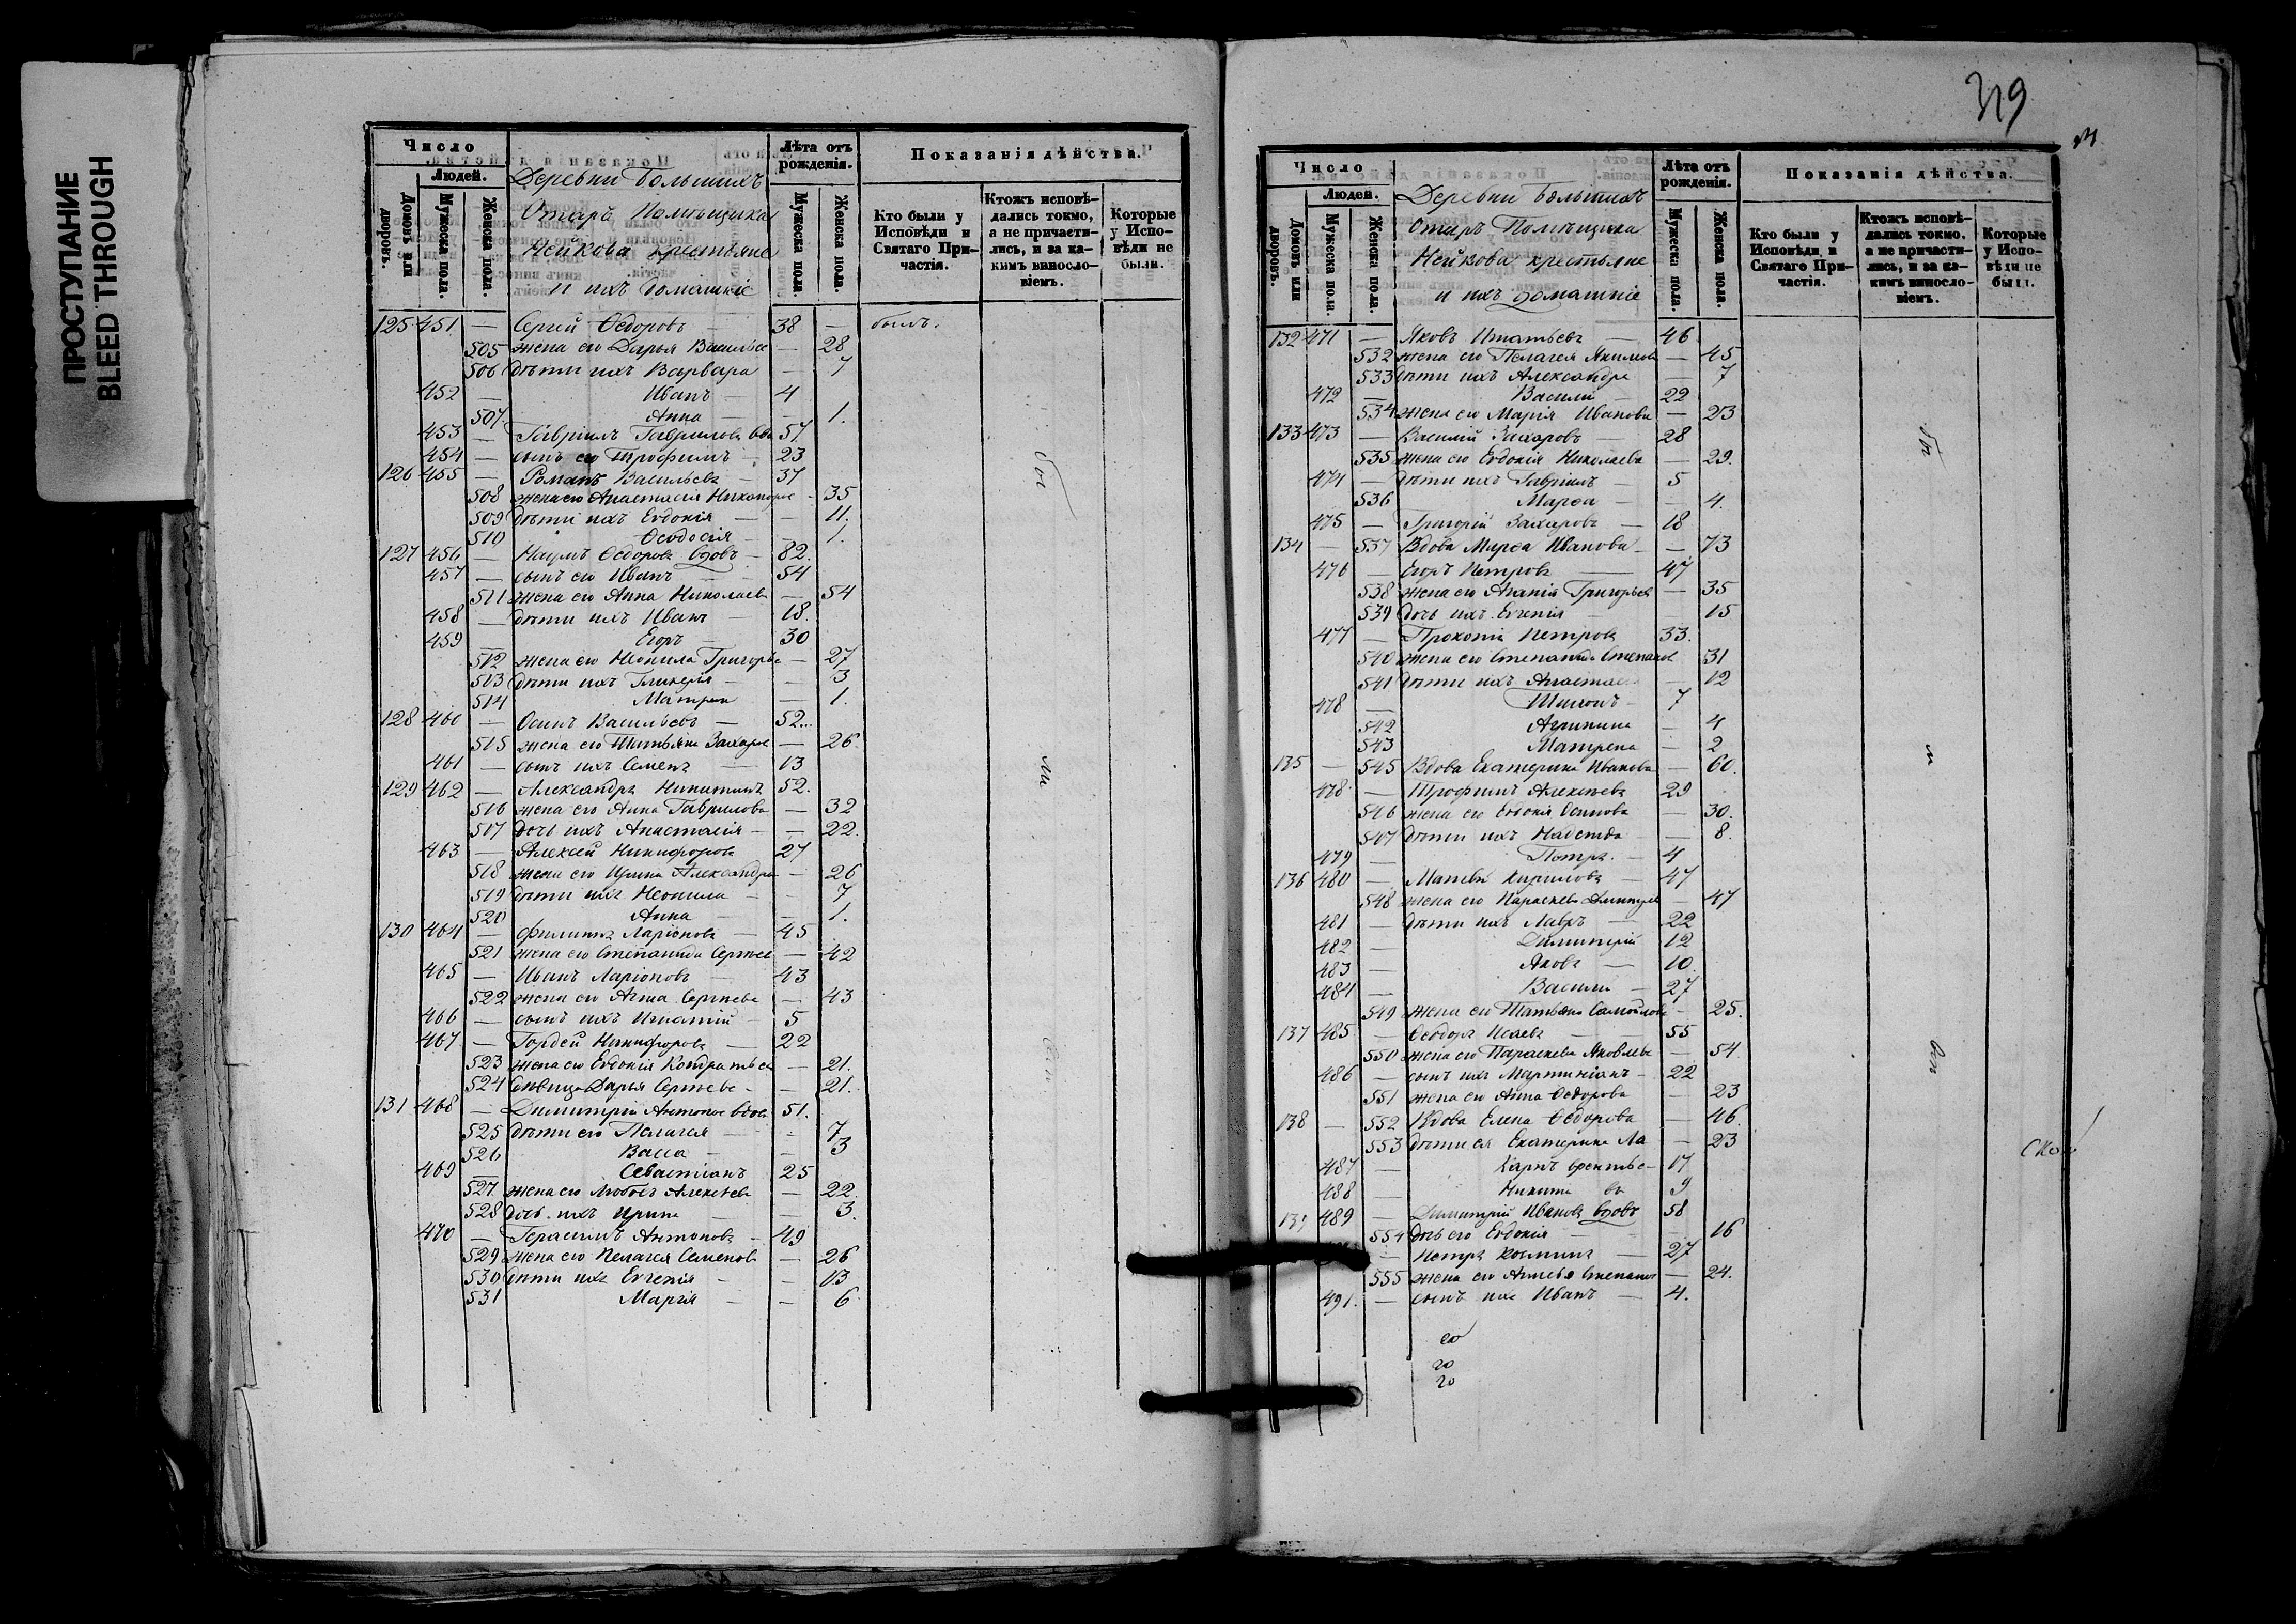 ПРОСТУПАНИЕ
BLEED THROUGH
Число
Людей.
Домовъ или дворовъ.
Мужеска пола.
Женска пола.
Деревни Большихъ
Отаръ Помѣщика
Нейкова крестьяне
и ихъ домашніе
Лѣта отъ рожденія.
Мужеска пола.
Женска пола.
Показанія дѣйства.
Кто были у Исповѣди и Святаго Причастія.
Ктожъ исповѣдались токмо, а не причастились, и за какимъ винословіемъ.
Которые у Исповѣди не были.
125 451 — Сергей Ѳедоровъ — 38 — былъ.
505 жена его Дарья Василье — 28
506 дѣти ихъ Варвара — 7
452 — Иванъ — 4
507 Анна — 1.
453 — Гавріилъ Гаврилова вдо 57.
454 — сынъ его Трофимъ — 23
126 455 — Романъ Васильевъ — 37
508 жена его Анастасія Никифоро — 35
509 дѣти ихъ Евдокія — 11.
510 Ѳеодосія — 1.
127 456 — Наумъ Ѳедоровъ вдовъ — 82.
457 — сынъ его Иванъ — 54
511 жена его Анна Николаев — 54
458 — дѣти ихъ Иванъ — 18.
459 — Егоръ — 30
512 жена его Неонила Григорье — 27
513 дѣти ихъ Гликерія — 3
514 Матрен — 1.
128 460 — Осипъ Васильевъ — 52..
515 жена его Татьяна Захаров — 26.
461 — сынъ ихъ Семенъ — 13
129 462 — Александръ Никитинъ 52.
516 жена его Анна Гаврилова — 32
517 дочь ихъ Анастасія — 22.
463 — Алексей Никифоровъ 27
518 жена его Ирина Александро — 26
519 дѣти ихъ Неонила — 7
520 Анна — 1.
130 464 — Филиппъ Ларіоновъ — 45
521 жена его Степанида Сергѣев — 42
465 — Иванъ Ларіоновъ — 43
522 жена его Анна Сергѣева — 43
466 — сынъ ихъ Игнатій — 5
467 — Гордей Никифоровъ — 22
523 жена его Евдокія Кондратьев — 21.
524 Дарья Сергѣева — 21.
131 468 — Димитрій Антонов вдов 51.
525 дѣти его Пелагея — 7
526 Васса — 3
469 — Севастіанъ 25
527 жена его Любовь Алексѣева — 22.
528 дочь ихъ Ирина — 3.
470 — Герасимъ Антоновъ — 49
529 жена его Пелагея Семенов — 26
530 дѣти ихъ Евгенія — 13
531 Марія — 6
319
Число
Людей.
Домовъ или дворовъ.
Мужеска пола.
Женска пола.
Деревни Большихъ
Отаръ Помѣщика
Нейкова крестьяне
и ихъ домашніе
Лѣта отъ рожденія.
Мужеска пола.
Женска пола.
Показанія дѣйства.
Кто были у Исповѣди и Святаго Причастія.
Ктожъ исповѣдались токмо, а не причастились, и за какимъ винословіемъ.
Которые у Исповѣди не были.
132 471 — Яковъ Игнатьевъ — 46
532 жена его Пелагея Якимов — 45
533 дѣти ихъ Александра — 7
472 — Василій — 22
534 жена его Марія Иванова — 23
133 473 — Василій Захаровъ — 28
535 жена его Евдокія Николаева — 29.
474 — дѣти ихъ Гавріилъ — 5
536 Марѳа — 4.
475 — Григорій Захаровъ — 18
134 — 537 Вдова Марѳа Иванова — 73
476 — Егоръ Петровъ — 47
538 жена его Агапія Григорьев — 35
539 дочь ихъ Евгенія — 15
477 — Прокопій Петровъ 33.
540 жена его Степанида Степанов 31
541 дѣти ихъ Анастас — 12
478 — 7
542 Агрипина — 4
543 Матрена — 2
135 — 545 Вдова Екатерина Иванова — 60.
478 — Трофимъ Алексѣевъ 29
546 жена его Евдокія Осипова — 30.
547 дѣти ихъ Надежда — 8.
479 — Петръ — 4
136 480 — Матвѣй Кириловъ — 47
548 жена его Параскева Димитріев — 47
481 — дѣти ихъ Лавръ — 22
482 — Димитрій 12
483 — Яковъ — 10.
484 — Василій — 27
549 жена его Татьяна Самойлова — 25.
137 485 — Ѳеодоръ Исаевъ — 55
550 жена его Параскева Яковлева — 54.
486 — сынъ ихъ Мартиніанъ — 22
551 жена его Анна Ѳедорова — 23
138 — 552 Вдова Елена Ѳедорова — 46.
553 дѣти ея Екатерина Ла — 23
487 — Карпъ врентье — 17
488 — Никита въ 9
139 489 — Димитрій Ивановъ вдовъ 58
554 дочь его Евдокія — 16
— Петръ Козминъ — 27
555 жена его Степанов — 24.
491. — сынъ ихъ Иванъ — 4.